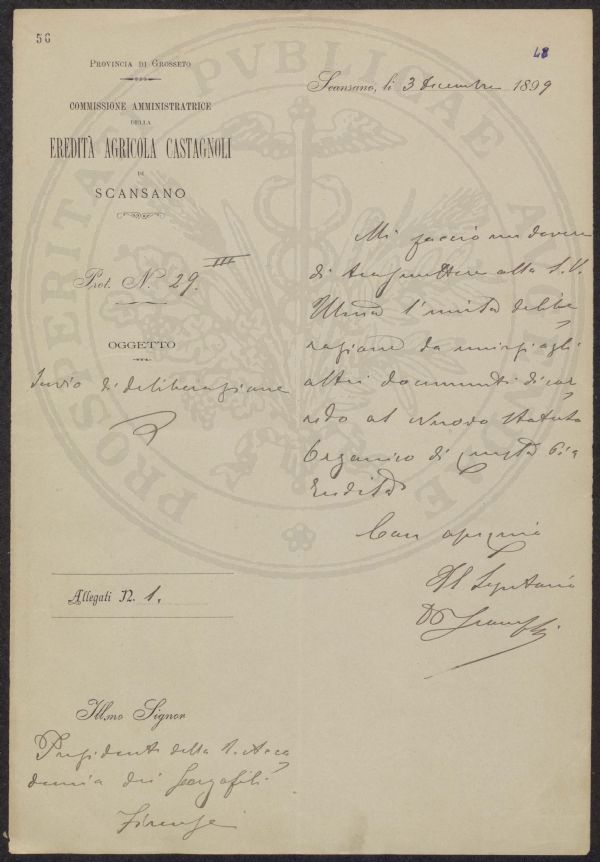 56
48
PROVINCIA DI GROSSETO
COMMISSIONE AMMINISTRATRICE
DELLA
EREDITÀ AGRICOLA CASTAGNOLI
DI
SCANSANO
Prot. N. 29 III
OGGETTO
Invio di deliberazione
Scansano, li 3 Decembre 1899
Mi faccio un dovere
di trasmettere alla S.V.
Illma l'unita delibe
razione da unirsi agli
altri documenti di cor
redo al Nuovo Statuto
Organico di questa Pia
Eredità
Con ossequio
Il Segretario
Allegati N. 1.
Ill.mo Signor
Presidente della R. Acca
demia dei Georgofili
Firenze
PROSPERITATI PVBLICAE AVGENDAE